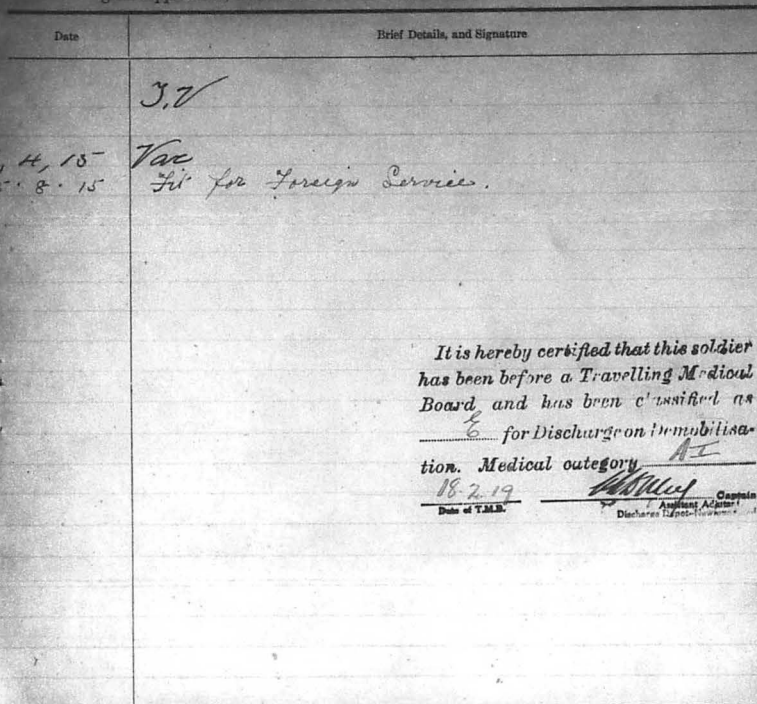 Date Brief Details, and Signature
T.V
4, 15 Vac
8. 15 Fit for Foreign Service.
It is hereby certified that this soldier
has been before a Travelling Medical
Board and has been classified as
E for Discharge on Demobilisa-
tion. Medical category AI
18.2.19 Captain
Date of T.M.B. Assistant Adjutant
Discharge Depot